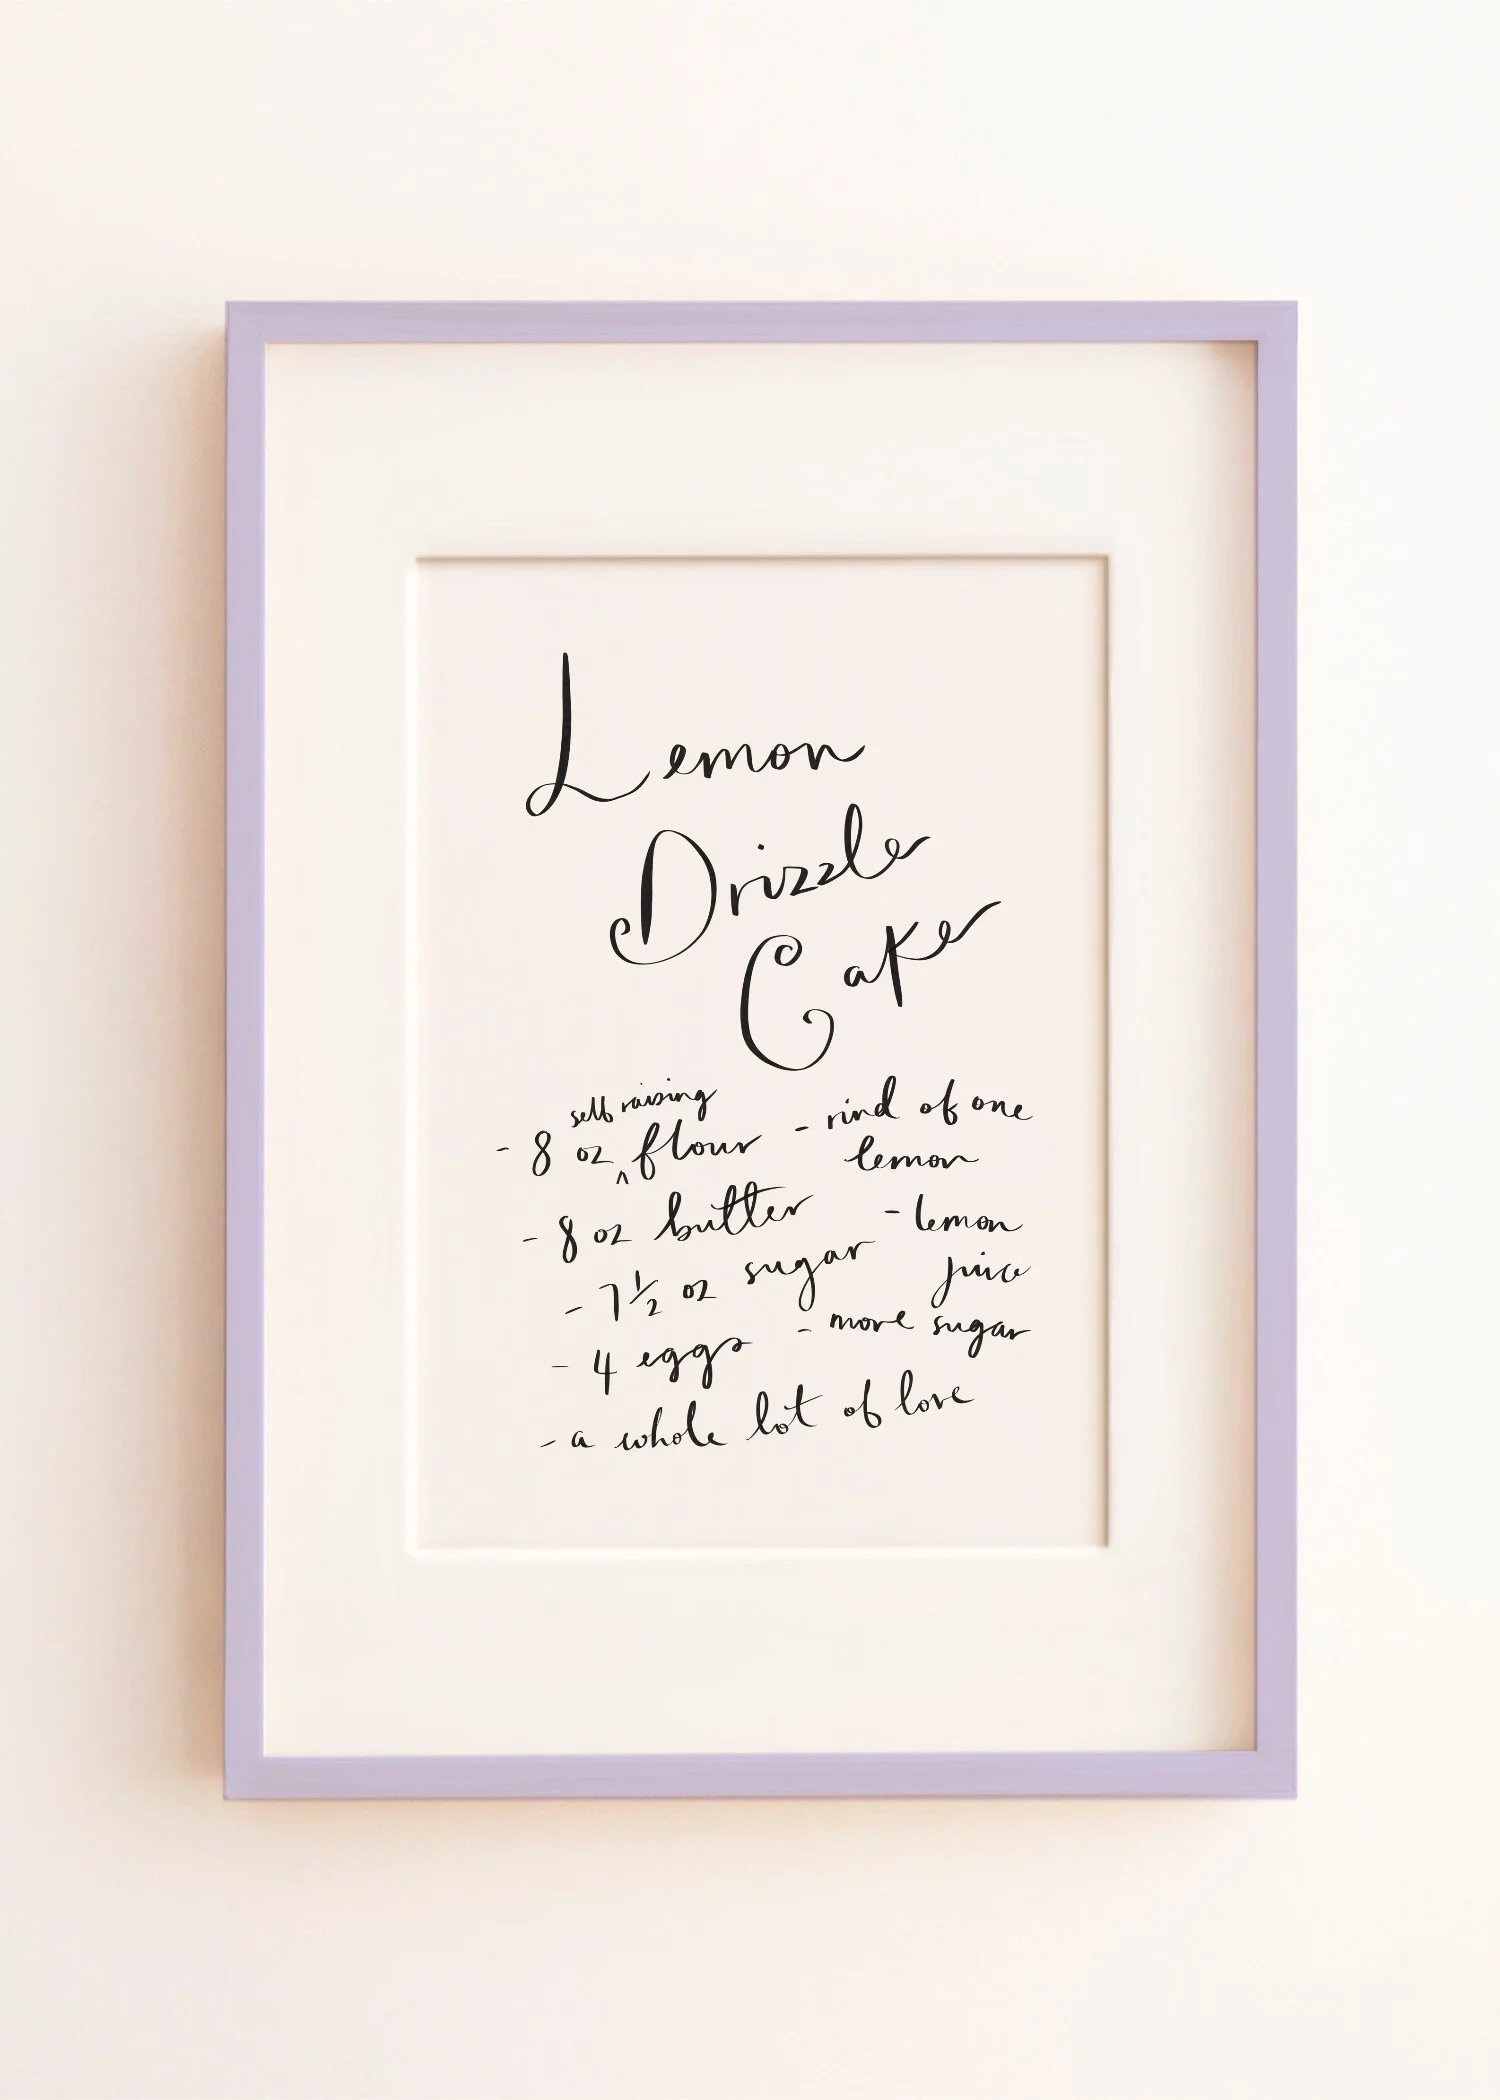 Lemon
Drizzle
Cake
- 8 oz ^ self raising flour
- 8 oz butter
- 7 1/2 oz sugar
- 4 eggs
- rind of one
lemon
- lemon
juice
- more sugar
- a whole lot of love